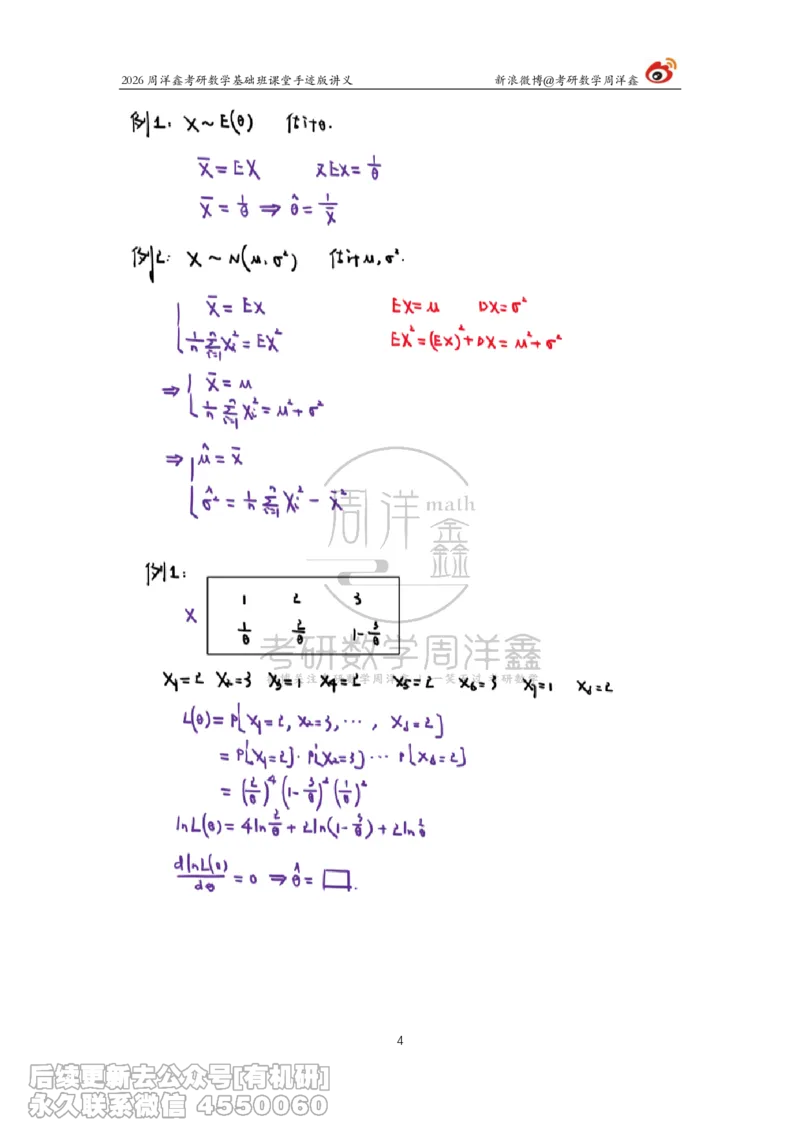 2026 周洋鑫考研数学基础班课堂手迹版讲义 新浪微博@考研数学周洋鑫
例1: X ~ E(θ) 估计θ.
X̄ = EX 又EX = 1/θ
X̄ = 1/θ ⇒ θ̂ = 1/X̄
例2: X ~ N(μ, σ²) 估计μ, σ².
X̄ = EX EX = μ DX = σ²
1/n ∑ᵢ₌₁ⁿ Xᵢ² = EX² EX² = (EX)² + DX = μ² + σ²
⇒ X̄ = μ
1/n ∑ᵢ₌₁ⁿ Xᵢ² = μ² + σ²
⇒ μ̂ = X̄
σ̂² = 1/n ∑ᵢ₌₁ⁿ Xᵢ² - X̄²
周洋鑫 math
例1:
1 2 3
X 1/θ 2/θ 1-3/θ
考研数学周洋鑫
X₁=2 X₂=3 X₃=1 X₄=2 X₅=2 X₆=3 X₇=1 X₈=2
L(θ) = P{X₁=2, X₂=3, ⋯, X₈=2}
= P{X₁=2}·P{X₂=3}⋯P{X₈=2}
= (2/θ)⁴(1-3/θ)²(1/θ)²
lnL(θ) = 4ln2/θ + 2ln(1-3/θ) + 2ln1/θ
dlnL(θ)/dθ = 0 ⇒ θ̂ = □.
4
后续更新去公众号[有机研]
永久联系微信 4550060